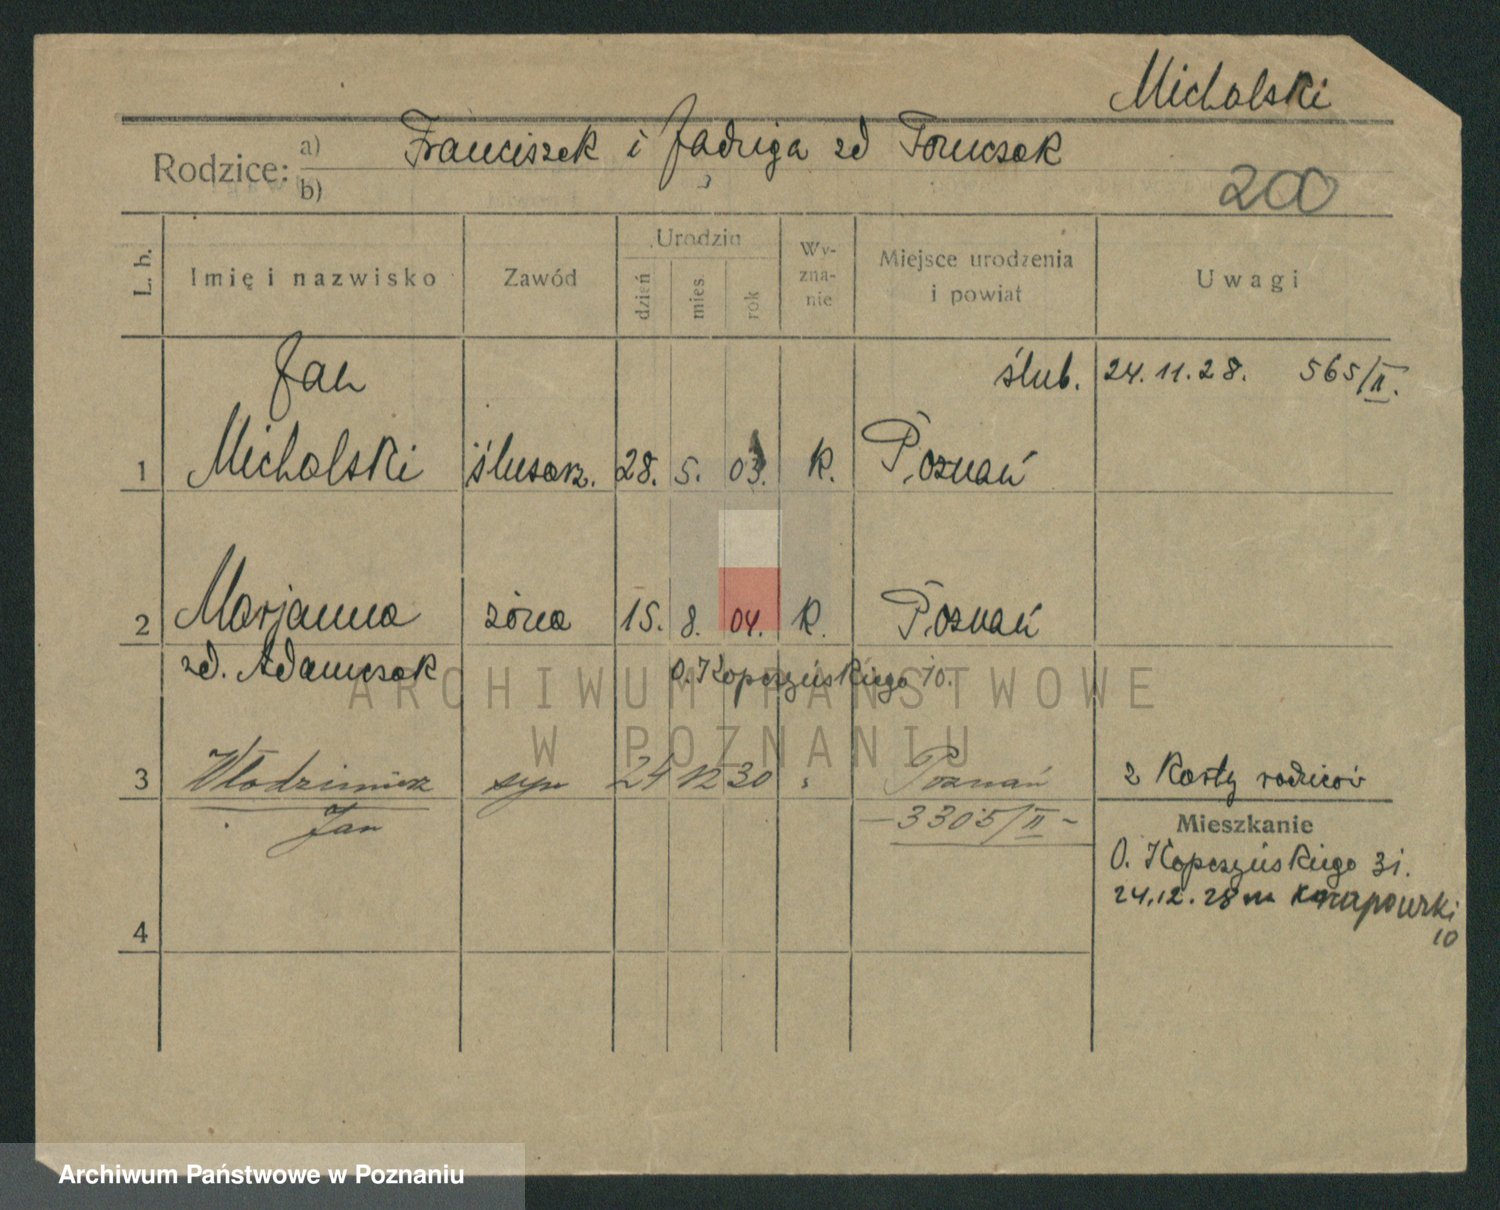 Michalski
Rodzice: a) Franciszek i Jadwiga zd Tomczak
b)
200
L. b. Imię i nazwisko Zawód Urodzin dzień mies. rok Wy-zna-nie Miejsce urodzenia i powiat Uwagi
Jan ślub. 24.11.28. 565/II.
1 Michalski ślusarz. 28. 5. 03. K. Poznań
2 Marjanna żona 15. 8. 04. K. Poznań
zd. Adamczak O. Kopczyńskiego 10.
ARCHIWUM PAŃSTWOWE
W POZNANIU
3 Włodzimierz syn 24 12 30 " Poznań 2 Karty rodziców
Jan - 3305/II - Mieszkanie
O. Kopczyńskiego 31.
24.12.28 na
4 10
Archiwum Państwowe w Poznaniu